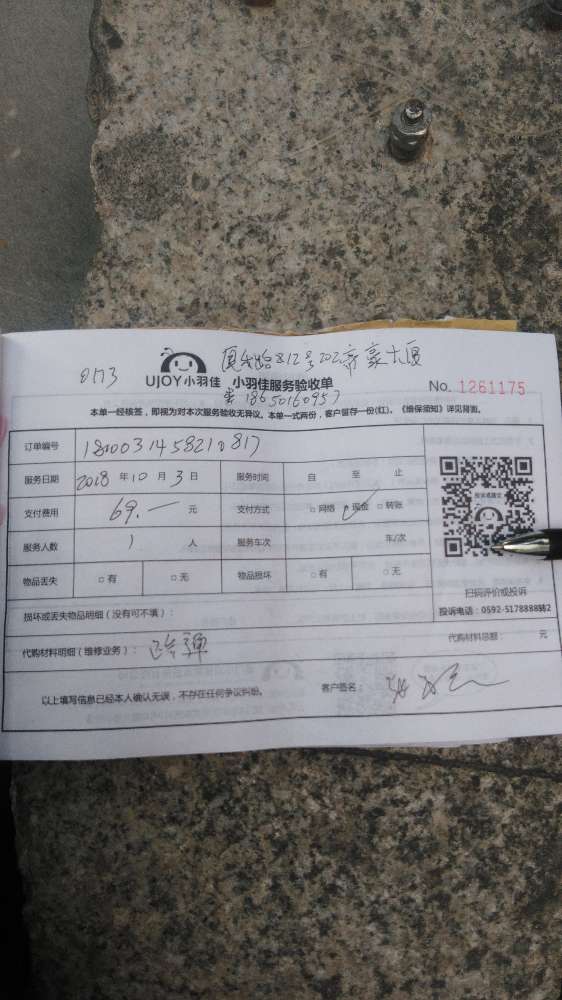 0173
812号202帝豪大厦
UJOY小羽佳 小羽佳服务验收单
No. 1261175
18650160957
本单一经核签，即视为对本次服务验收无异议。本单一式两份，客户留存一份(红)。《维保须知》详见背面。
订单编号 1810031458210817
服务日期 2018 年 10 月 3 日 服务时间 自 至 止
支付费用 69.— 元 支付方式 □网络 ☑现金 □转账
服务人数 1 人 服务车次 车/次
物品丢失 □有 □无 物品损坏 □有 □无
投诉或提交
扫码评价或投诉
投诉电话：0592-5178888转2
损坏或丢失物品明细（没有可不填）：
代购材料明细（维修业务）： 代购材料总额： 元
以上填写信息已经本人确认无误，不存在任何争议纠纷。 客户签名：